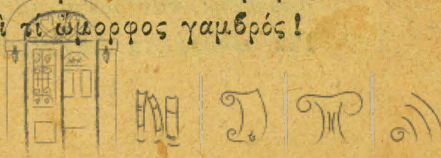 τί ὤμορφος γαμβρός!